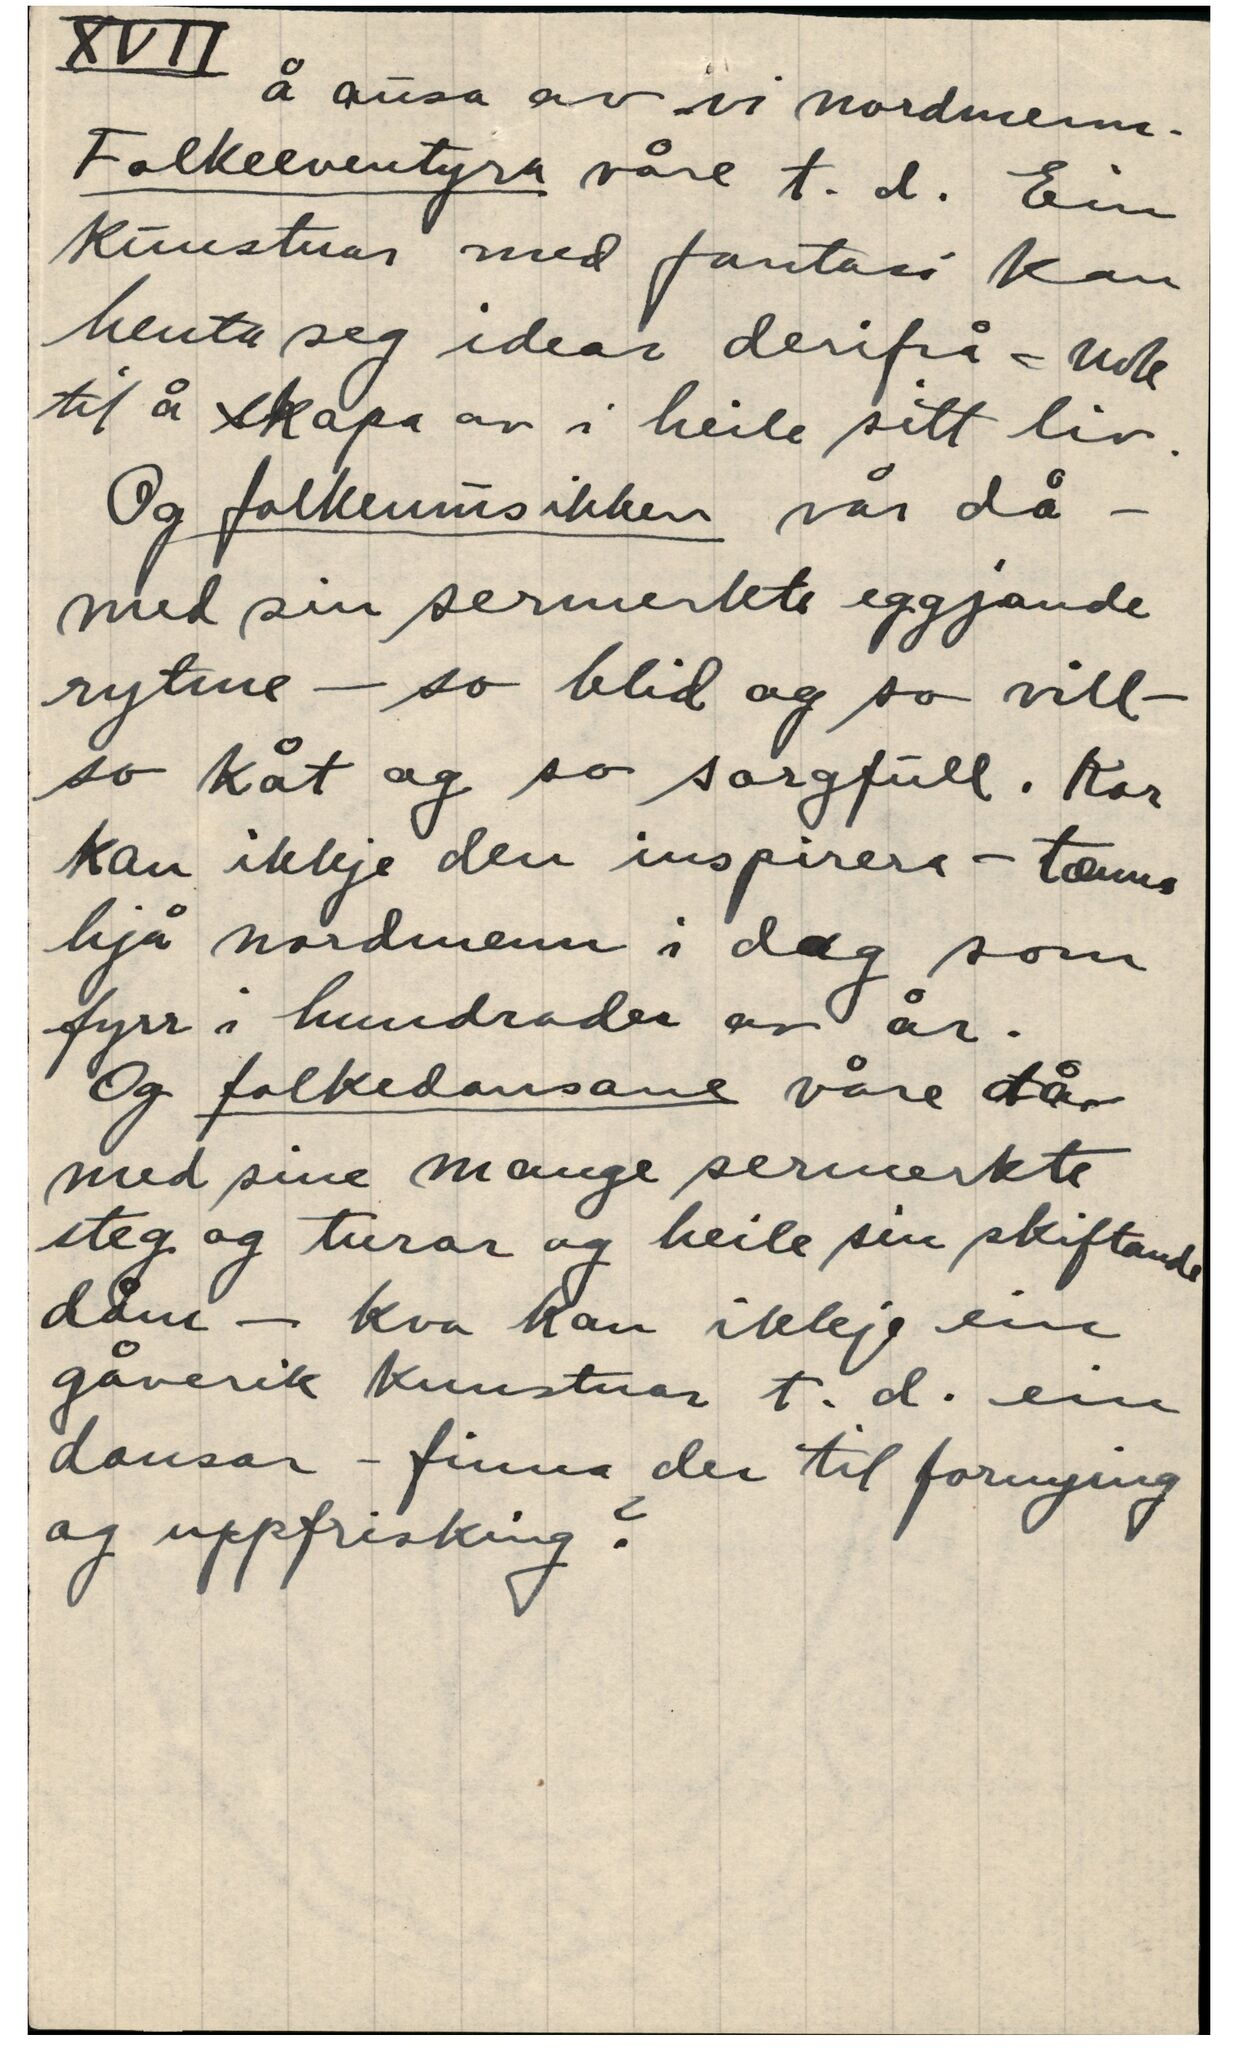 XVII
å ausa av vi nordmenn.
Folkeeventyra våre t. d. Ein
kunstnar med fantasi kan
henta seg idear derifrå - nok
til å skapa av i heile sitt liv.
Og folkemusikken vår då -
med sin sermerkte eggjande
rytme - so blid og so vill -
so kåt og so sorgfull. Kor
kan ikkje den inspirera - tenna
hjå nordmenn i dag som
fyrr i hundrader av år.
Og folkedansane våre då
med sine mange sermerkte
steg og turar og heile sin skiftande
dåm - kva kan ikkje ein
gåverik kunstnar t. d. ein
dansar - finna der til fornying
og uppfrisking?